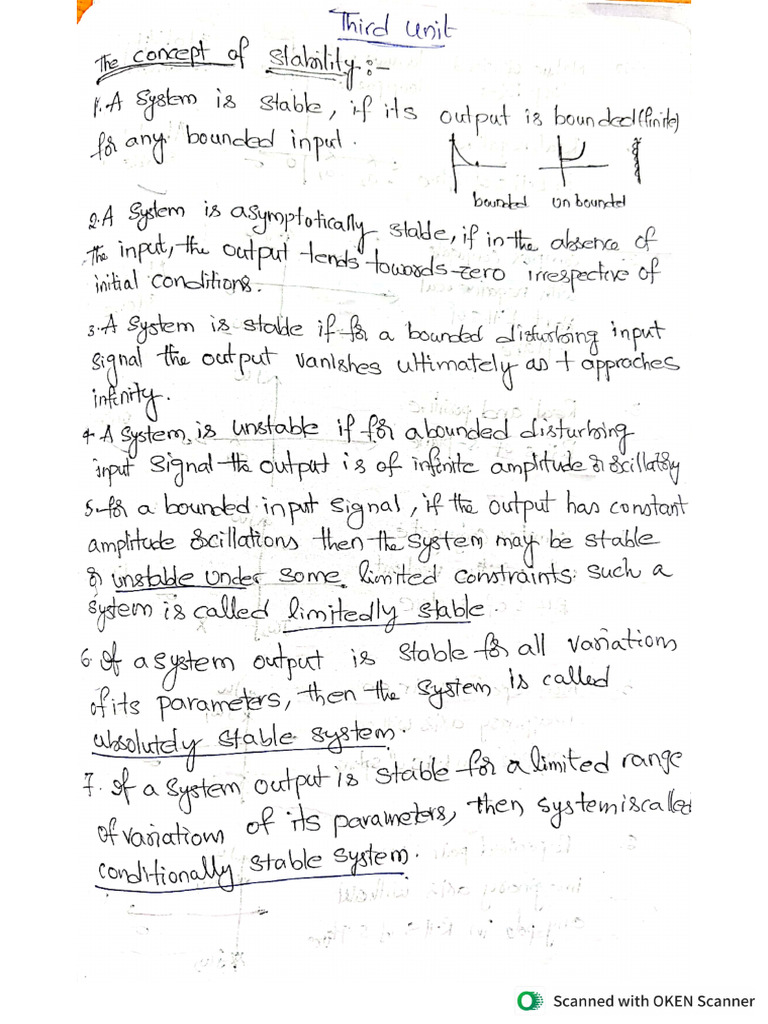 Third Unit
The concept of Stability:-
1. A System is stable, if its output is bounded (finite)
for any bounded input.
bounded un bounded
2. A System is asymptotically stable, if in the absence of
the input, the output tends towards zero irrespective of
initial conditions.
3. A System is stable if for a bounded disturbing input
signal the output vanishes ultimately as t approaches
infinity.
4 A System, is unstable if for a bounded disturbing
input Signal the output is of infinite amplitude or oscillatory
5. for a bounded input signal, if the output has constant
amplitude oscillations then the system may be stable
or unstable under some limited constraints. such a
system is called limitedly stable.
6. If a system output is stable for all variations
of its parameters, then the system is called
absolutely stable system.
7. If a system output is stable for a limited range
of variations of its parameters, then system is called
conditionally stable system.
Scanned with OKEN Scanner